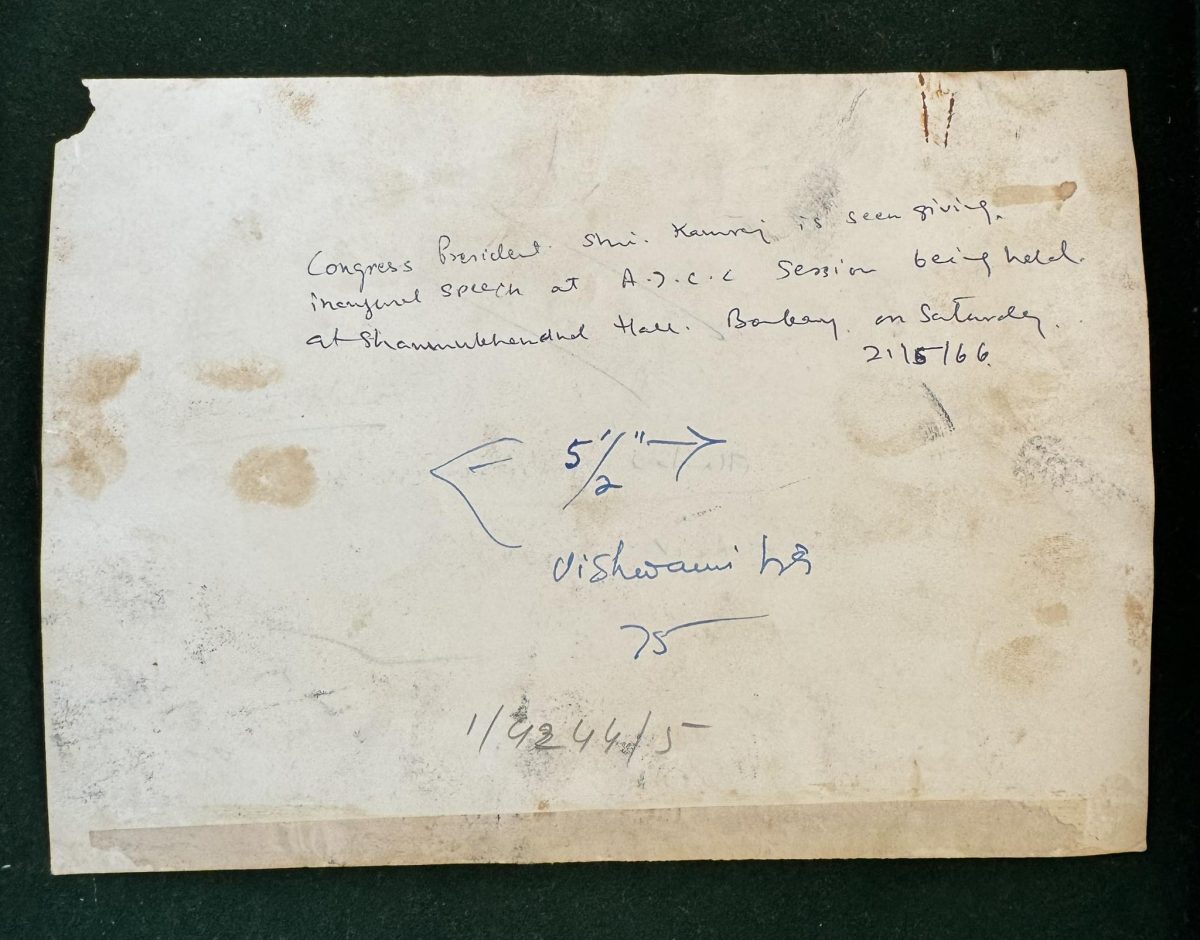 Congress President. Shri. Kamraj is seen giving.
inaugural speech at A.I.C.C Session being held.
at Shanmukhandnd Hall. Bombay. on Saturday.
21/5/66.
5 1/2"
Vishwami
75
1/4244/5